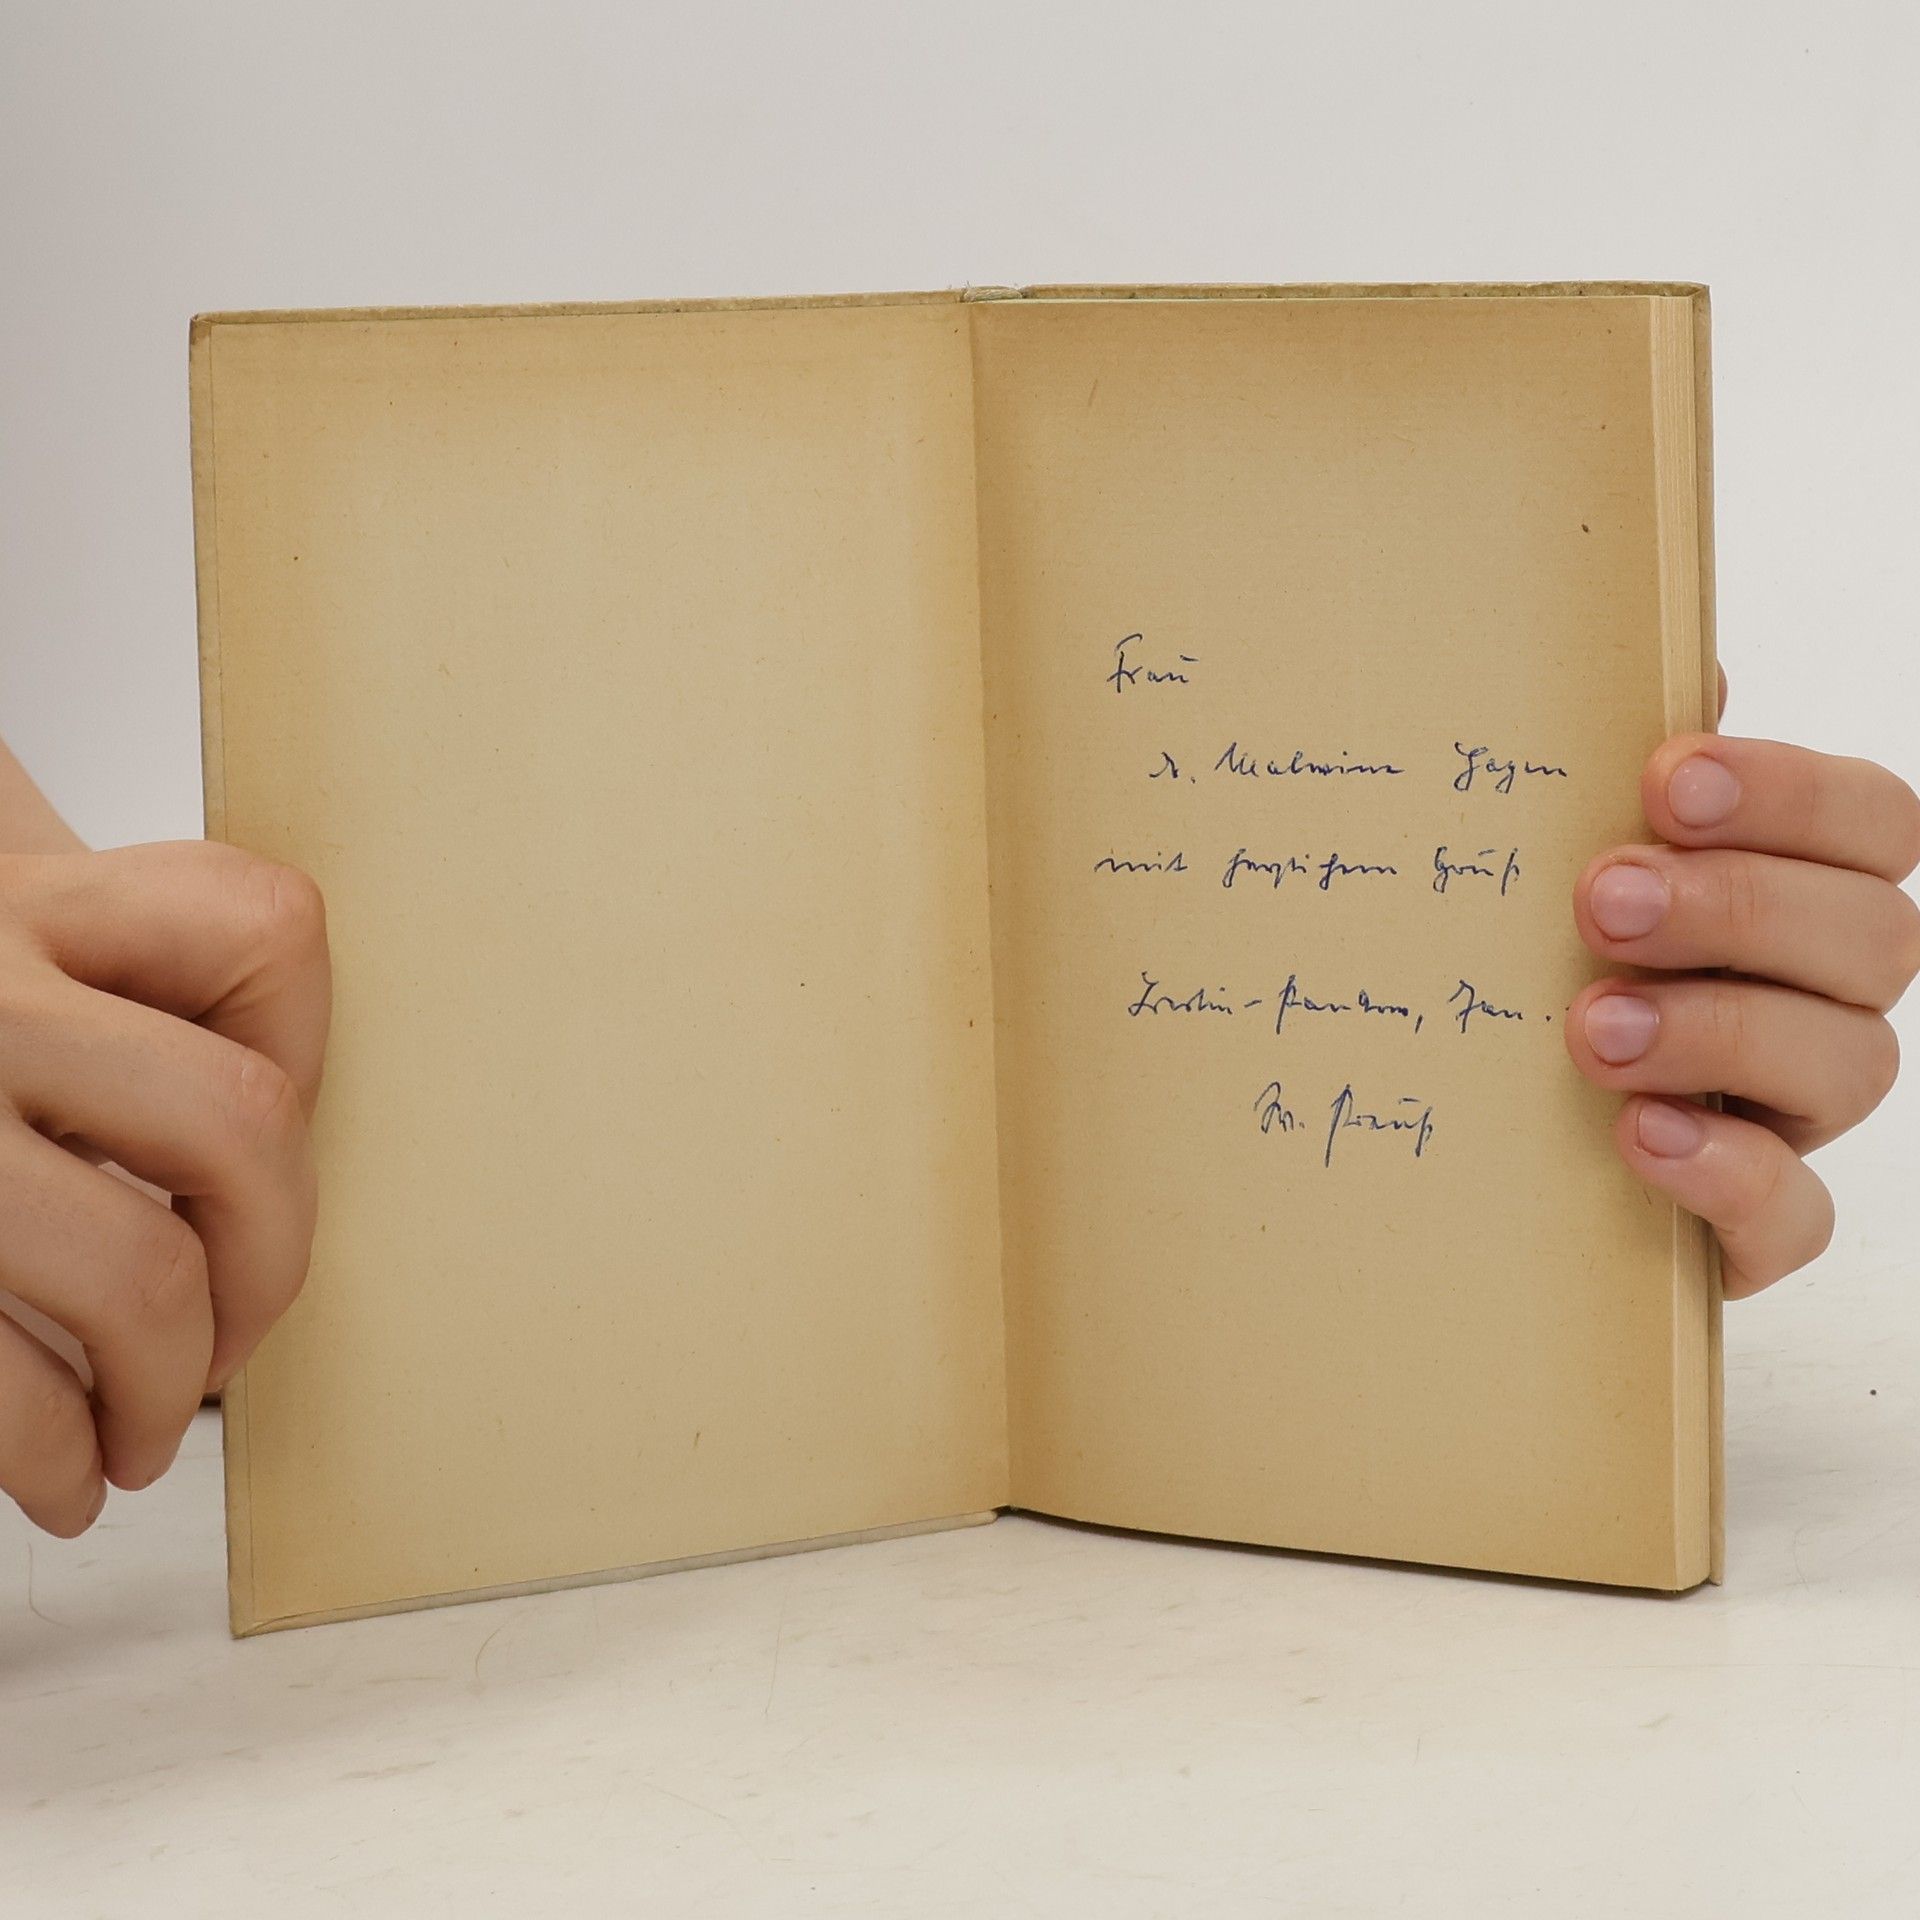 Frau
Malwine Hagen
mit herzlichem Gruß
Berlin-Pankow, Jan.
W. Krauß